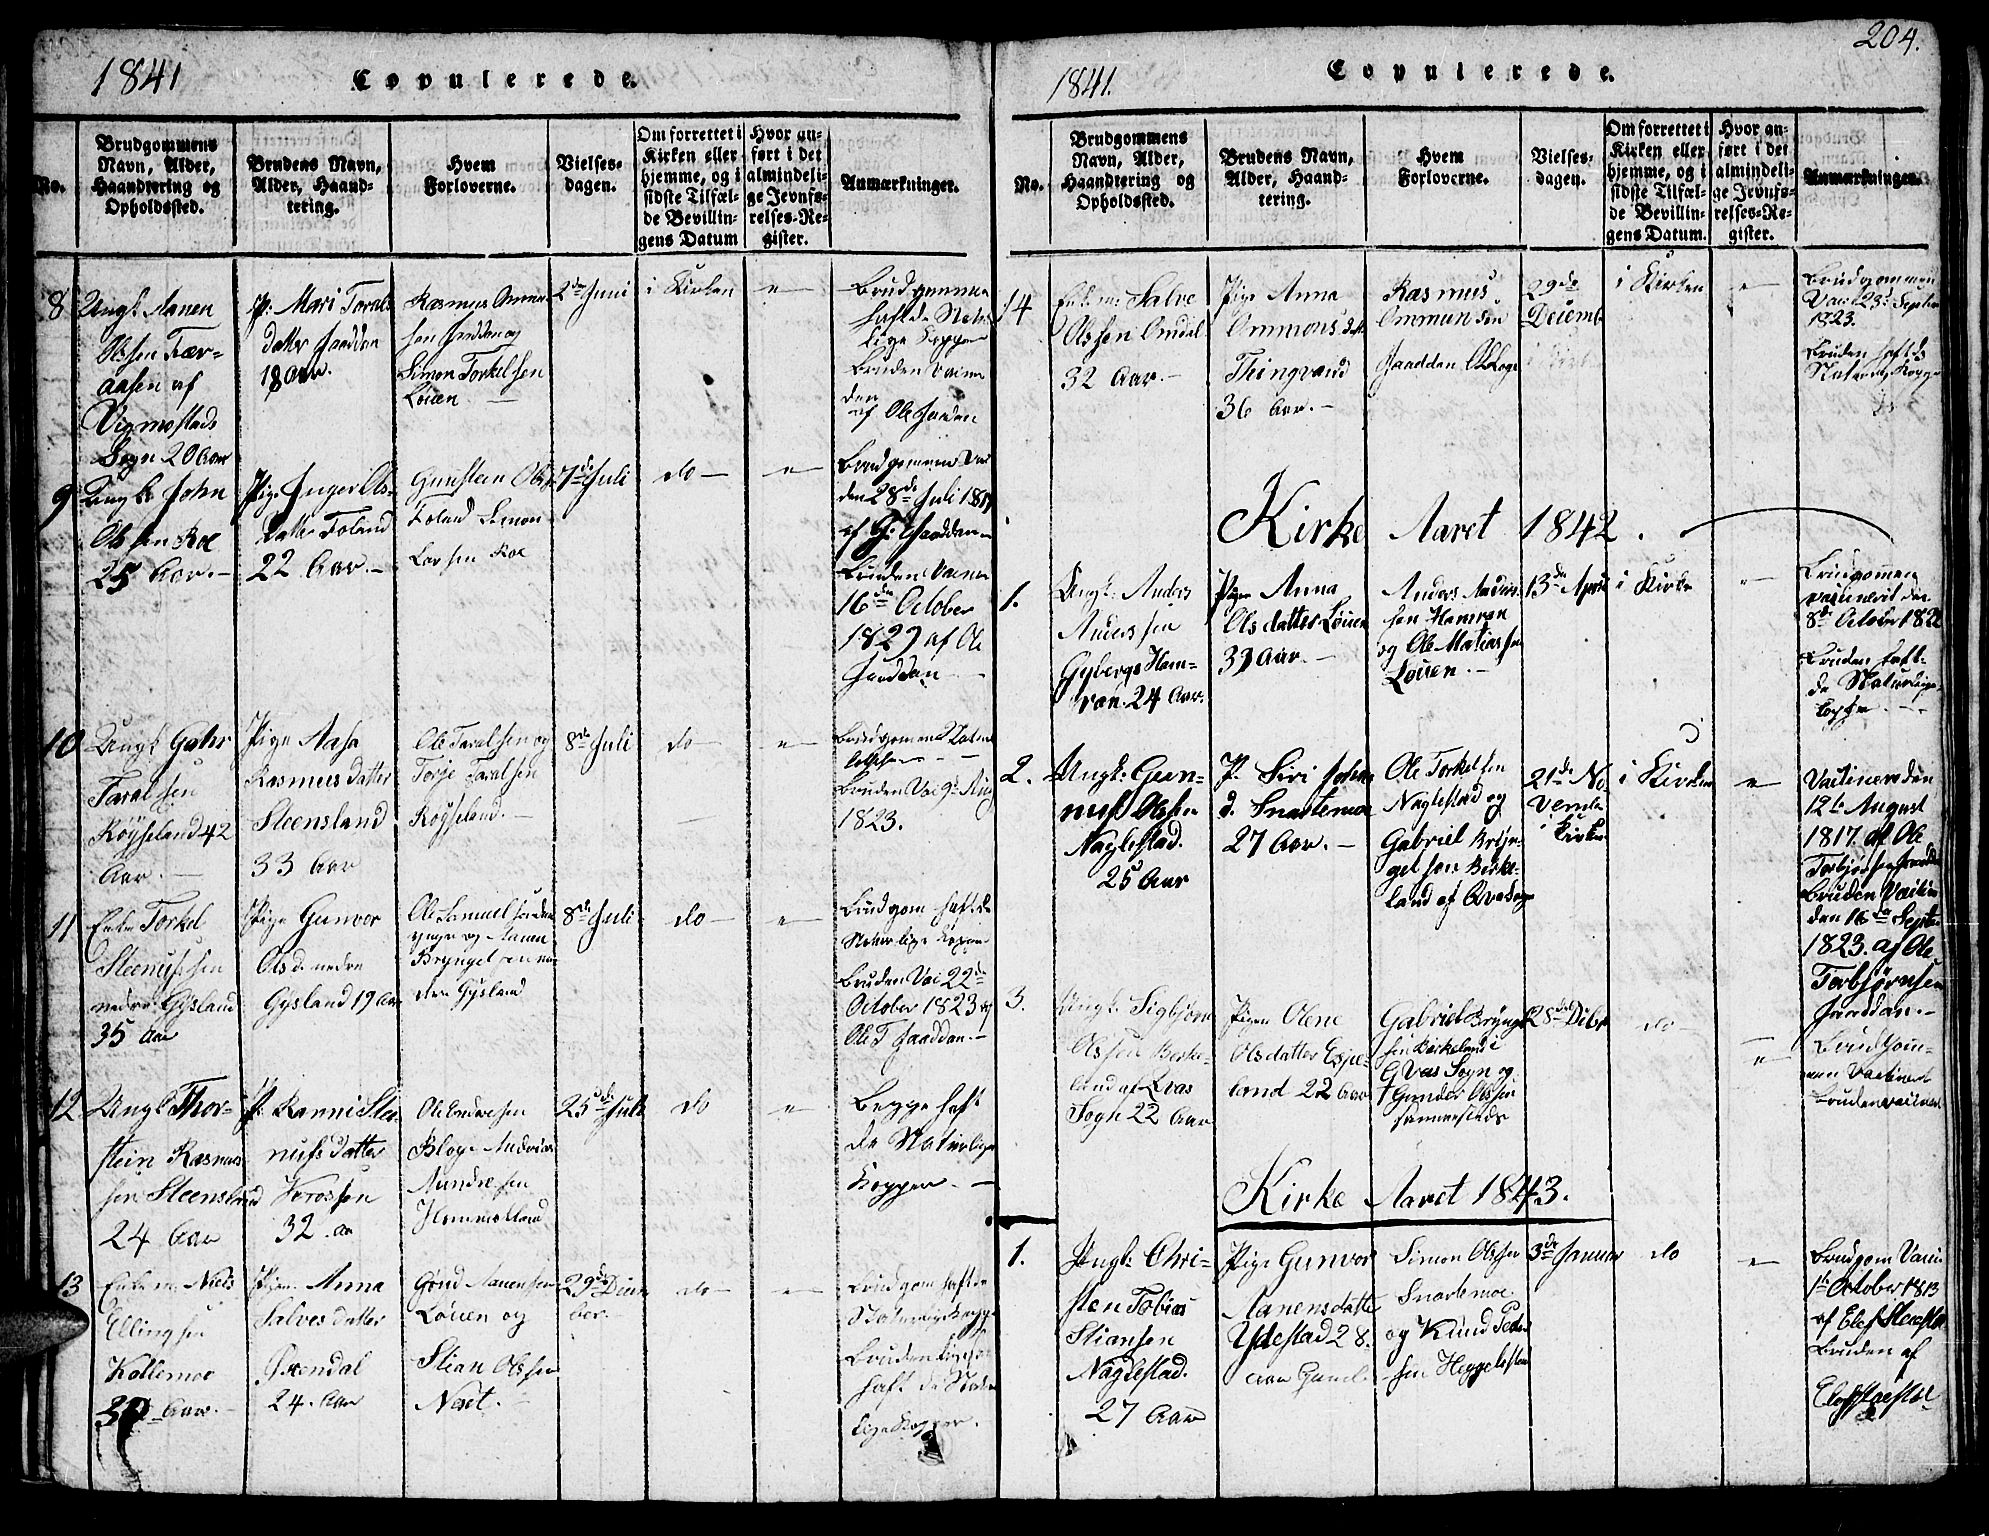 204.
1841
Copulerede.
No.
Brudgommens
Navn, Alder,
Haandtering og
Opholdssted.
Brudens Navn,
Alder, Haand-
tering.
Hvem
Forloverne.
Vielses-
dagen.
Om forrettet i
Kirken eller
hjemme, og i
sidste Tilfæl-
de Bevillin-
gens Datum
Hvor an-
ført i det
almindeli-
ge Jevnfø-
relses-Re-
gister.
Anmærkninger.
8
Ungk. Aanen
Olssen Fær-
aasen af
Vigmostads
Sogn 20 Aar
P. Mari Torals
datter Jaaddan
18 Aar.
Rasmus
sen Jaaddan og
Simon Torkelsen
Löien
2de Juni
i Kirken
"
Brudgommen
hafde Natur
lige Kopper
Bruden Vaine
den
af Ole Jaadan
9
Ungk. John
Olssen Roe
25 Aar.
Pige Inger Ols-
datter Foland
22 Aar.
Gunstein Ols
Foland Simon
Larsen Roe
7de Juli
do
"
Brudgommen Vac
den 28de Juli 1817
af Jaaddan
Bruden Vacine
16de October
1829 af Ole
Jaaddan
10
Ungk. Gahr
Taralssen
Röyseland 42
Aar.
Pige Aasa
Rasmusdatter
Steensland
33 Aar
Ole Taralsen og
Torje Taralsen
Röyseland.
8de Juli
do
"
Brudgommen Natur
Bruden Vac 9de Aug
1823.
11
Enkem Torkel
Steenulfsen
nedre Gysland
35 Aar
Pige Gunvor
Ols d. nedre
Gysland 19 Aar
Ole Samuelsen den
yngre og Aanen
Bryngelsen ne
dre Gysland
8de Juli
do
"
Brudgom hafde
Naturlige Kopper
Bruden Vac 22de
October 1823 af
Ole T Jaaddan.
12
Ungk. Thor-
stein Rasmus
sen Steensland
24 Aar
P. Ranni Stee
nulfsdatter
Verossen
32. Aar
Ole Endresen
Bloge
Aundresen
Hommeland
25de Juli
do
"
Begge haf
de Naturlige
Kopper.
13
Enkem. Niels
Ellingsen
Kollemoe
Aar.
Pigen Anna
Salvesdatter
24. Aar
Gönd Aanensen
Löien og
Stian Olssen
Neset.
29de Decem
ber.
do
"
Brudgom hafde
Naturlige Kopper
Bruden ligesaa
hafde Natur
lige Kopper.
1841.
Copulerede.
No.
Brudgommens
Navn, Alder,
Haandtering og
Opholdssted.
Brudens Navn,
Alder, Haand-
tering.
Hvem
Forloverne.
Vielses-
dagen.
Om forrettet i
Kirken eller
hjemme, og i
sidste Tilfæl-
de Bevillin-
gens Datum.
Hvor an-
ført i det
almindeli-
ge Jevnfø-
relses-Re-
gister.
Anmærkninger.
14
Enkem. Salve
Olssen Omdal
32 Aar.
Pige Anna
Ommons dat
Thingvand
36 Aar.
Rasmus
Ommundsen
Jaaddan
29de
Decemb
i Kirken
"
Brudgommen
Vac 23de Septbr
1823.
Bruden hafde
Naturlig Kopper
Kirke Aaret 1842.
1.
Ungk. Anders
Anderssen
Gybergs Ham-
ran. 24 Aar.
Pige Anna
Olsdatter Löien
33 Aar.
Anders Anders
sen Hamran
og Ole Matiassen
Löien.
13de April
i Kirke
"
Brudgommen
vacineret den
8de October 1822
Bruden haf-
de Naturlige
Kopper.
2.
Ungk: Gun-
nuf Olssen
Naglestad.
25 Aar
P. Siri Johns
d. Snartemoe
27 Aar.
Ole Torkelsen
Naglestad og
Gabriel Bryn-
gelsen Birke-
land af Qvas Sogn
21de No
vembr
i Kirken
i Kirken
"
Vacineret den
12te August
1817 af Ole
Torbjørnsen Jaaddan
Bruden Vacine
den 16de Septbr
1823. af Ole
Torbjørnsen
Jaaddan.
3.
Ungk. Sigbjörn
Olssen Birke-
land af Qvas
Sogn 22 Aar
Pigen Olene
Olsdatter Espe-
land 22 Aar
Gabriel Bryngel
sen Birkeland i
Qvas Sogn og
Gunder Olssen
28de Decbr
do
"
Brudgom-
men Vacineret
Bruden vacineret
Kirke Aaret 1843.
1.
Ungk. Chri-
sten Tobias
Stiansen
Naglestad.
27 Aar
Pige Gunvor
Aanensdatter
Ydestad 28.
Aar Gaml.
Simon Olssen
Snartemoe
og Knud Peder
sen Heggelsten
3de Januar
do
"
Brudgom Vacin
1te October 1813
af Elef
Bruden af